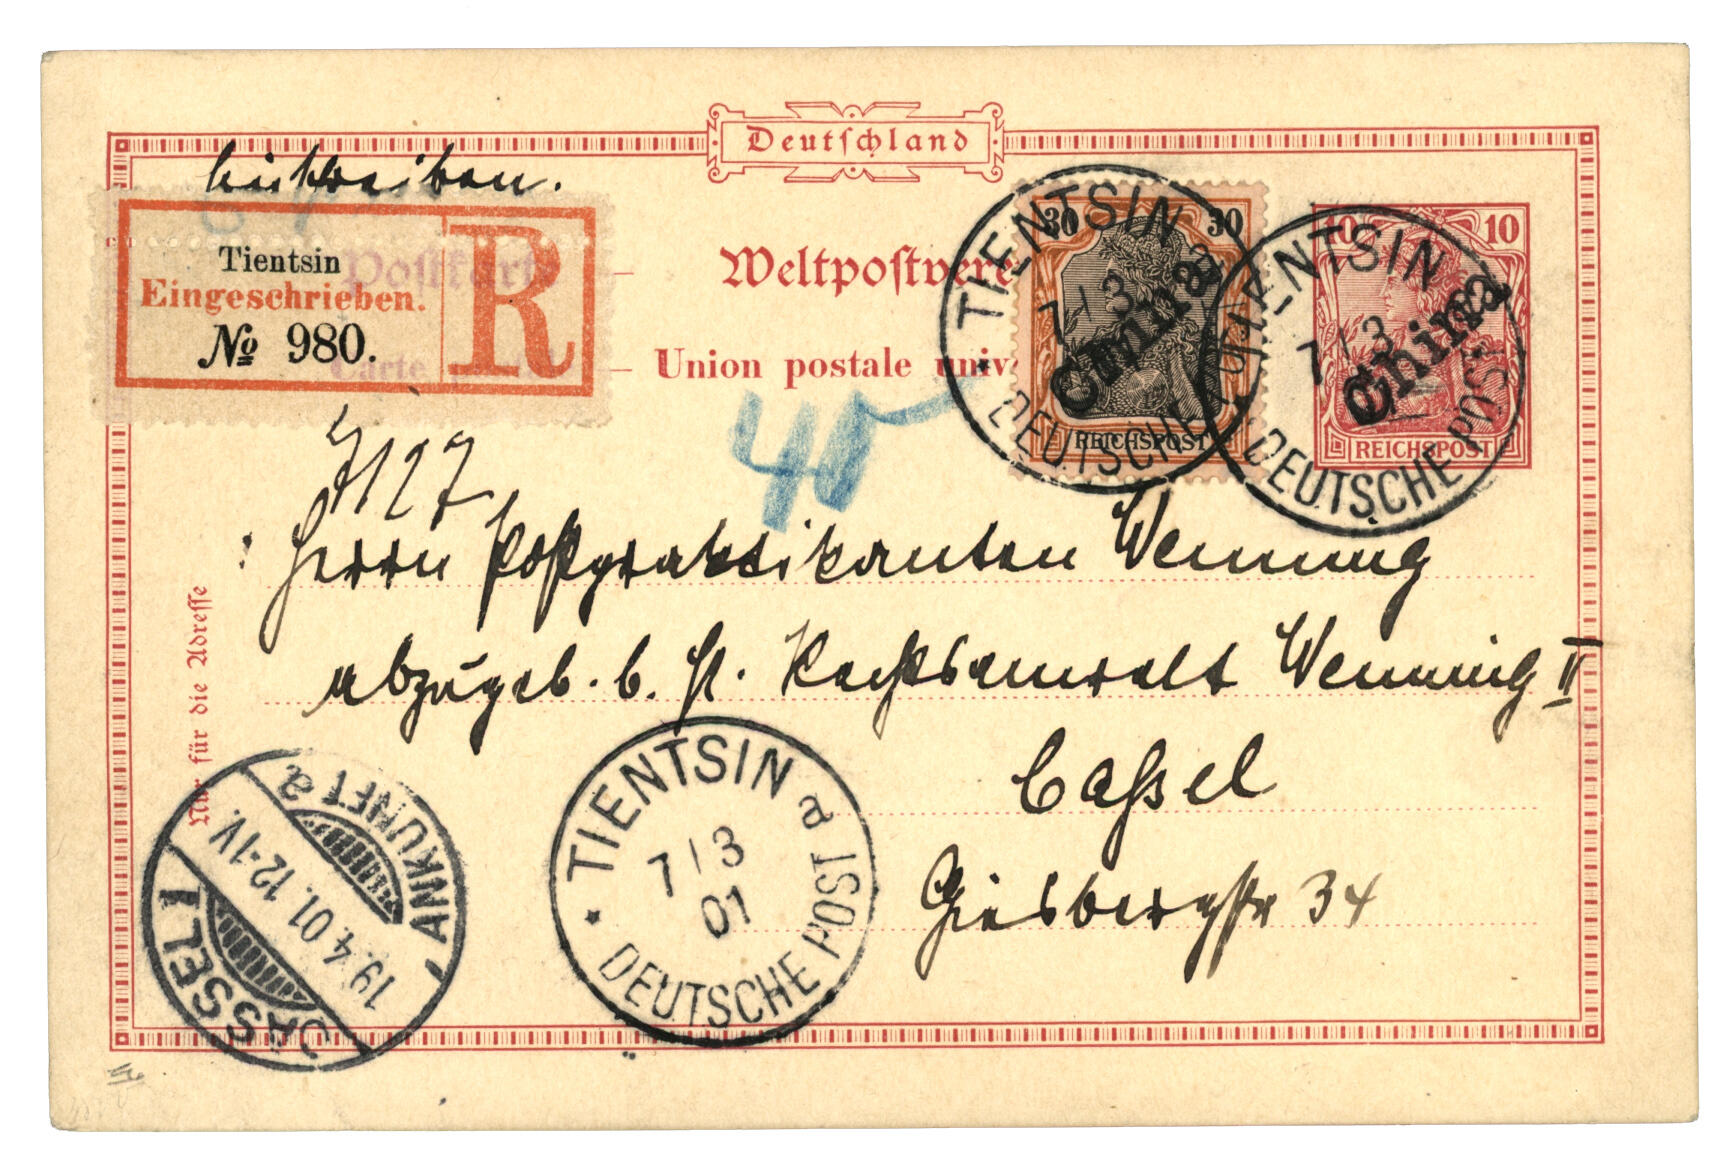 Deutschland
Einschreiben.
Tientsin
Eingeschrieben.
№ 980.
R
Postkarte
Weltpostvere
Carte
Union postale univ
30 30
China
REICHSPOST
10 10
China
REICHSPOST
TIENTSIN
a
7/3
DEUTSCHE POST
TIENTSIN
7/3
DEUTSCHE POST
40
7127
Herrn Postpraktikanten Wenning
abzugeb. b. H. Rechtsanwalt Wenning II
Cassel
Giesbergstr 34
Nur für die Adresse
TIENTSIN
a
7/3
01
* DEUTSCHE POST
CASSEL 1
19.4.01. 12-1V.
ANKUNFT a